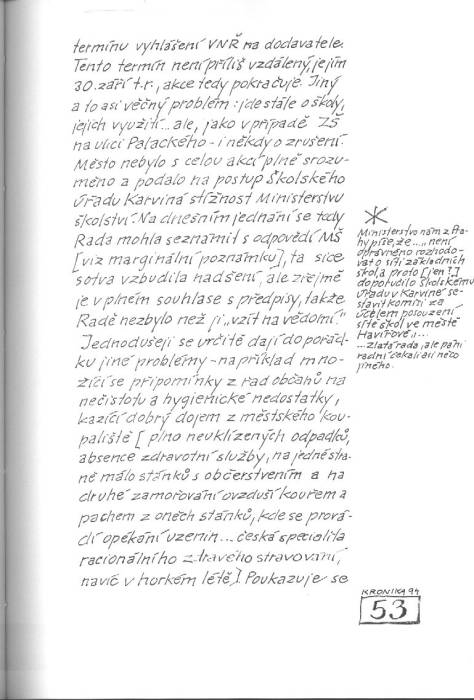 termínu vyhlášení VNŘ na dodavatele.
Tento termín není příliš vzdálený, je jím
30. září t.r., akce tedy pokračuje. Jiný
a to asi věčný problém: jde stále o školy,
jejich využití...ale, jako v případě ZŠ
na ulici Palackého - i někdy o zrušení.
Město nebylo s celou akcí plně srozu-
měno a podalo na postup Školského
úřadu Karviná stížnost Ministerstvu
školství. Na dnešním jednání se tedy
Rada mohla seznámit s odpovědí MŠ
[viz marginální poznámku], ta sice
sotva vzbudila nadšení, ale zřejmě
je v plném souhlase s předpisy, takže
Radě nezbylo než ji „vzít na vědomí."
Jednodušeji se určitě dají do pořád-
ku jiné problémy - například mno-
žící se připomínky z řad občanů na
nečistotu a hygienické nedostatky,
kazící dobrý dojem z městského kou-
paliště [plno neuklízených odpadků,
absence zdravotní služby, na jedné stra-
ně málo stánků s občerstvením a na
druhé zamořování ovzduší kouřem a
pachem z oněch stánků, kde se prová-
dí opékání uzenin... česká specialita
racionálního zdravého stravování,
navíc v horkém létě]. Poukazuje se
Ministerstvo nám z Pra-
hy píše, že „... není
oprávněno rozhodo-
vat o síti základních
škol a proto [jen!]
doporučilo Školskému
úřadu v Karviné se-
stavit komisi za
účelem posouzení
sítě škol ve městě
Havířově"...
...zlatá rada, ale páni
radní čekali asi něco
jiného.
KRONIKA 94
53